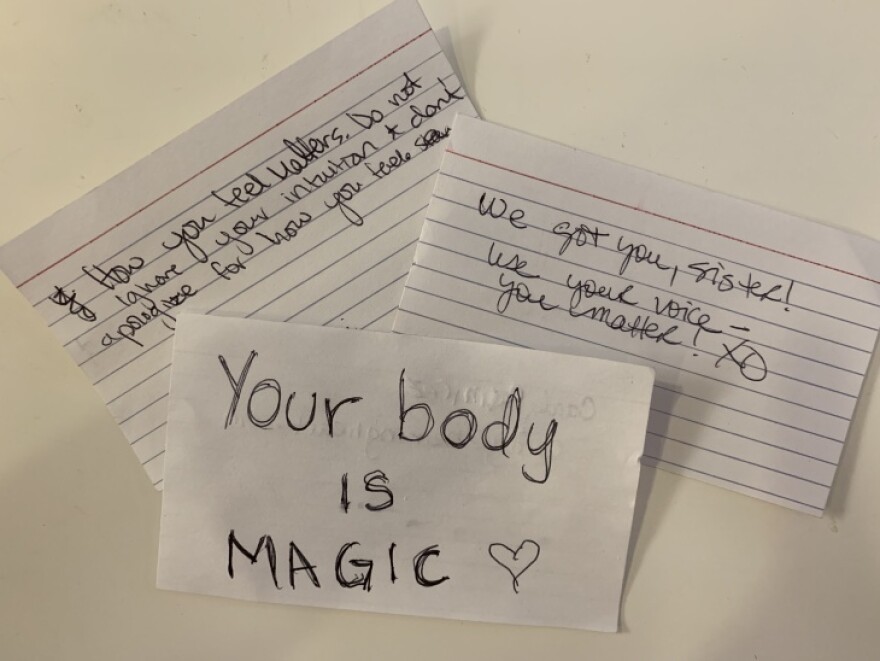 How you feel matters. Do not
ignore your intuition & don't
apologize for how you feel.
We got you, sister!
Use your voice -
you matter! XO
Your body
is
MAGIC ♡